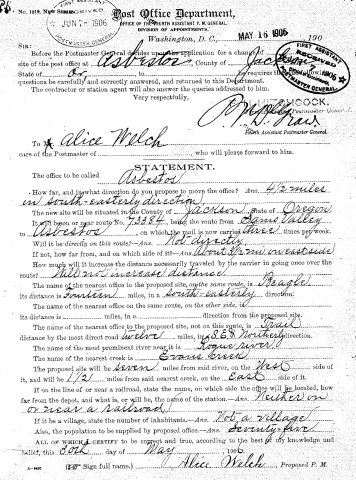 No. 1019. New Series.
Post Office Department,
OFFICE OF THE FOURTH ASSISTANT P. M. GENERAL,
DIVISION OF APPOINTMENTS,
FIRST ASSISTANT
RECEIVED
JUN -7 1906
POSTMASTER GENERAL
Washington, D. C., MAY 16 1906 190
SIR:
Before the Postmaster General decides upon the application for a change of
site of the post office at Asbestos County of Jackson
State of Or, to he requires the following
questions be carefully and correctly answered, and returned to this Department.
The contractor or station agent will also answer the queries addressed to him.
Very respectfully,
FIRST ASSISTANT
RECEIVED
1906
POSTMASTER GENERAL
HITCHCOCK.
Fourth Assistant Postmaster General.
To Alice Welch
care of the Postmaster of , who will please forward to him.
STATEMENT.
The office to be called Asbestos
How far, and in what direction do you propose to move the office? Ans. 4 1/2 miles
in south-easterly direction
The new site will be situated in the County of Jackson, State of Oregon
It will be on or near route No. 73384, being the route from Sams Valley
to Asbestos, on which the mail is now carried three times per week.
Will it be directly on this route?—Ans. Not directly
If not, how far, and on which side of it?—Ans. About 3/4 mi on east side
How much will it increase the distance necessarily traveled by the carrier in going once over the
route? Will not increase distance.
The name of the nearest office to the proposed site, on the same route, is Beagle,
its distance is fourteen miles, in a south-easterly direction.
The name of the nearest office on the same route, on the other side, is
its distance is miles, in a direction from the proposed site.
The name of the nearest office to the proposed site, not on this route, is Trail
distance by the most direct road twelve miles, in direction.
The name of the most prominent river near it is Rogue river
The name of the nearest creek is Evans Creek
The proposed site will be seven miles from said river, on the West side of
it, and will be 1 1/2 miles from said nearest creek, on the East side of it.
If on the line of or near a railroad, state the name, on which side the office will be located, how
far from the depot, and what is, or will be, the name of the station.—Ans. Neither on
or near a railroad
If it be a village, state the number of inhabitants.—Ans. Not a village
Also, the population to be supplied by proposed office.—Ans. Seventy-five
ALL OF WHICH I CERTIFY to be correct and true, according to the best of my knowledge and
belief, this 30th day of May 1906
Sign full name. Alice Welch, Proposed P. M.